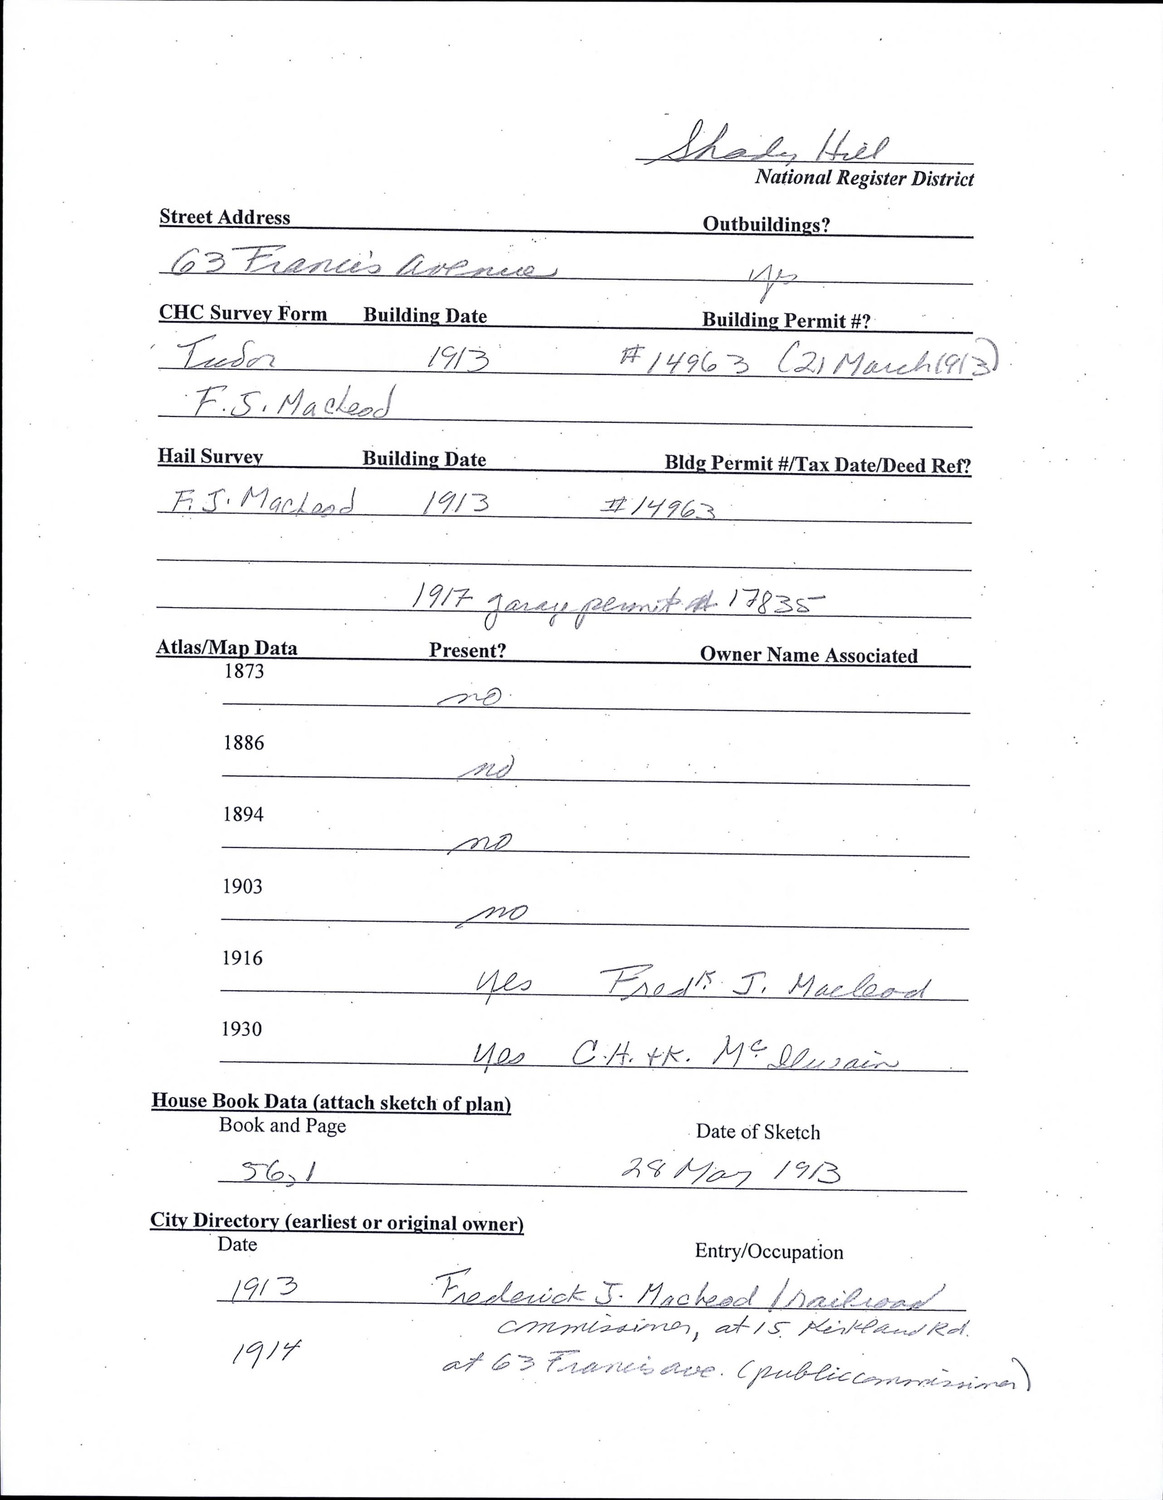 Shady Hill
National Register District
Street Address Outbuildings?
63 Francis Avenue yes
CHC Survey Form Building Date Building Permit #?
Tudor 1913 #14963 (21 March 1913)
F. J. MacLeod
Hail Survey Building Date Bldg Permit #/Tax Date/Deed Ref?
F. J. MacLeod 1913 #14963
1917 garage permit # 17835
Atlas/Map Data Present? Owner Name Associated
1873
no
1886
no
1894
no
1903
no
1916
yes Fredk J. Macleod
1930
yes C.H. + K. McIlwain
House Book Data (attach sketch of plan)
Book and Page Date of Sketch
56, 1 28 May 1913
City Directory (earliest or original owner)
Date Entry/Occupation
1913 Frederick J. Macleod / railroad
commissioner, at 15 Kirkland Rd.
1914 at 63 Francis ave. (public commissioner)